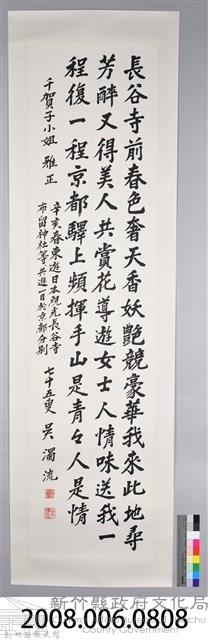 長谷寺前春色奢天香妖艷競豪華我來此地尋
芳醉又得美人共賞花導遊女士人情味送我一
程復一程京都驛上頻揮手山是青々人是情
千賀子小姐 雅正
辛亥春東遊日本觀光長谷寺
布留神社等共遊一日於京都分別
七十五叟 吳濁流
新竹縣政府文化局
County Government
2008.006.0808